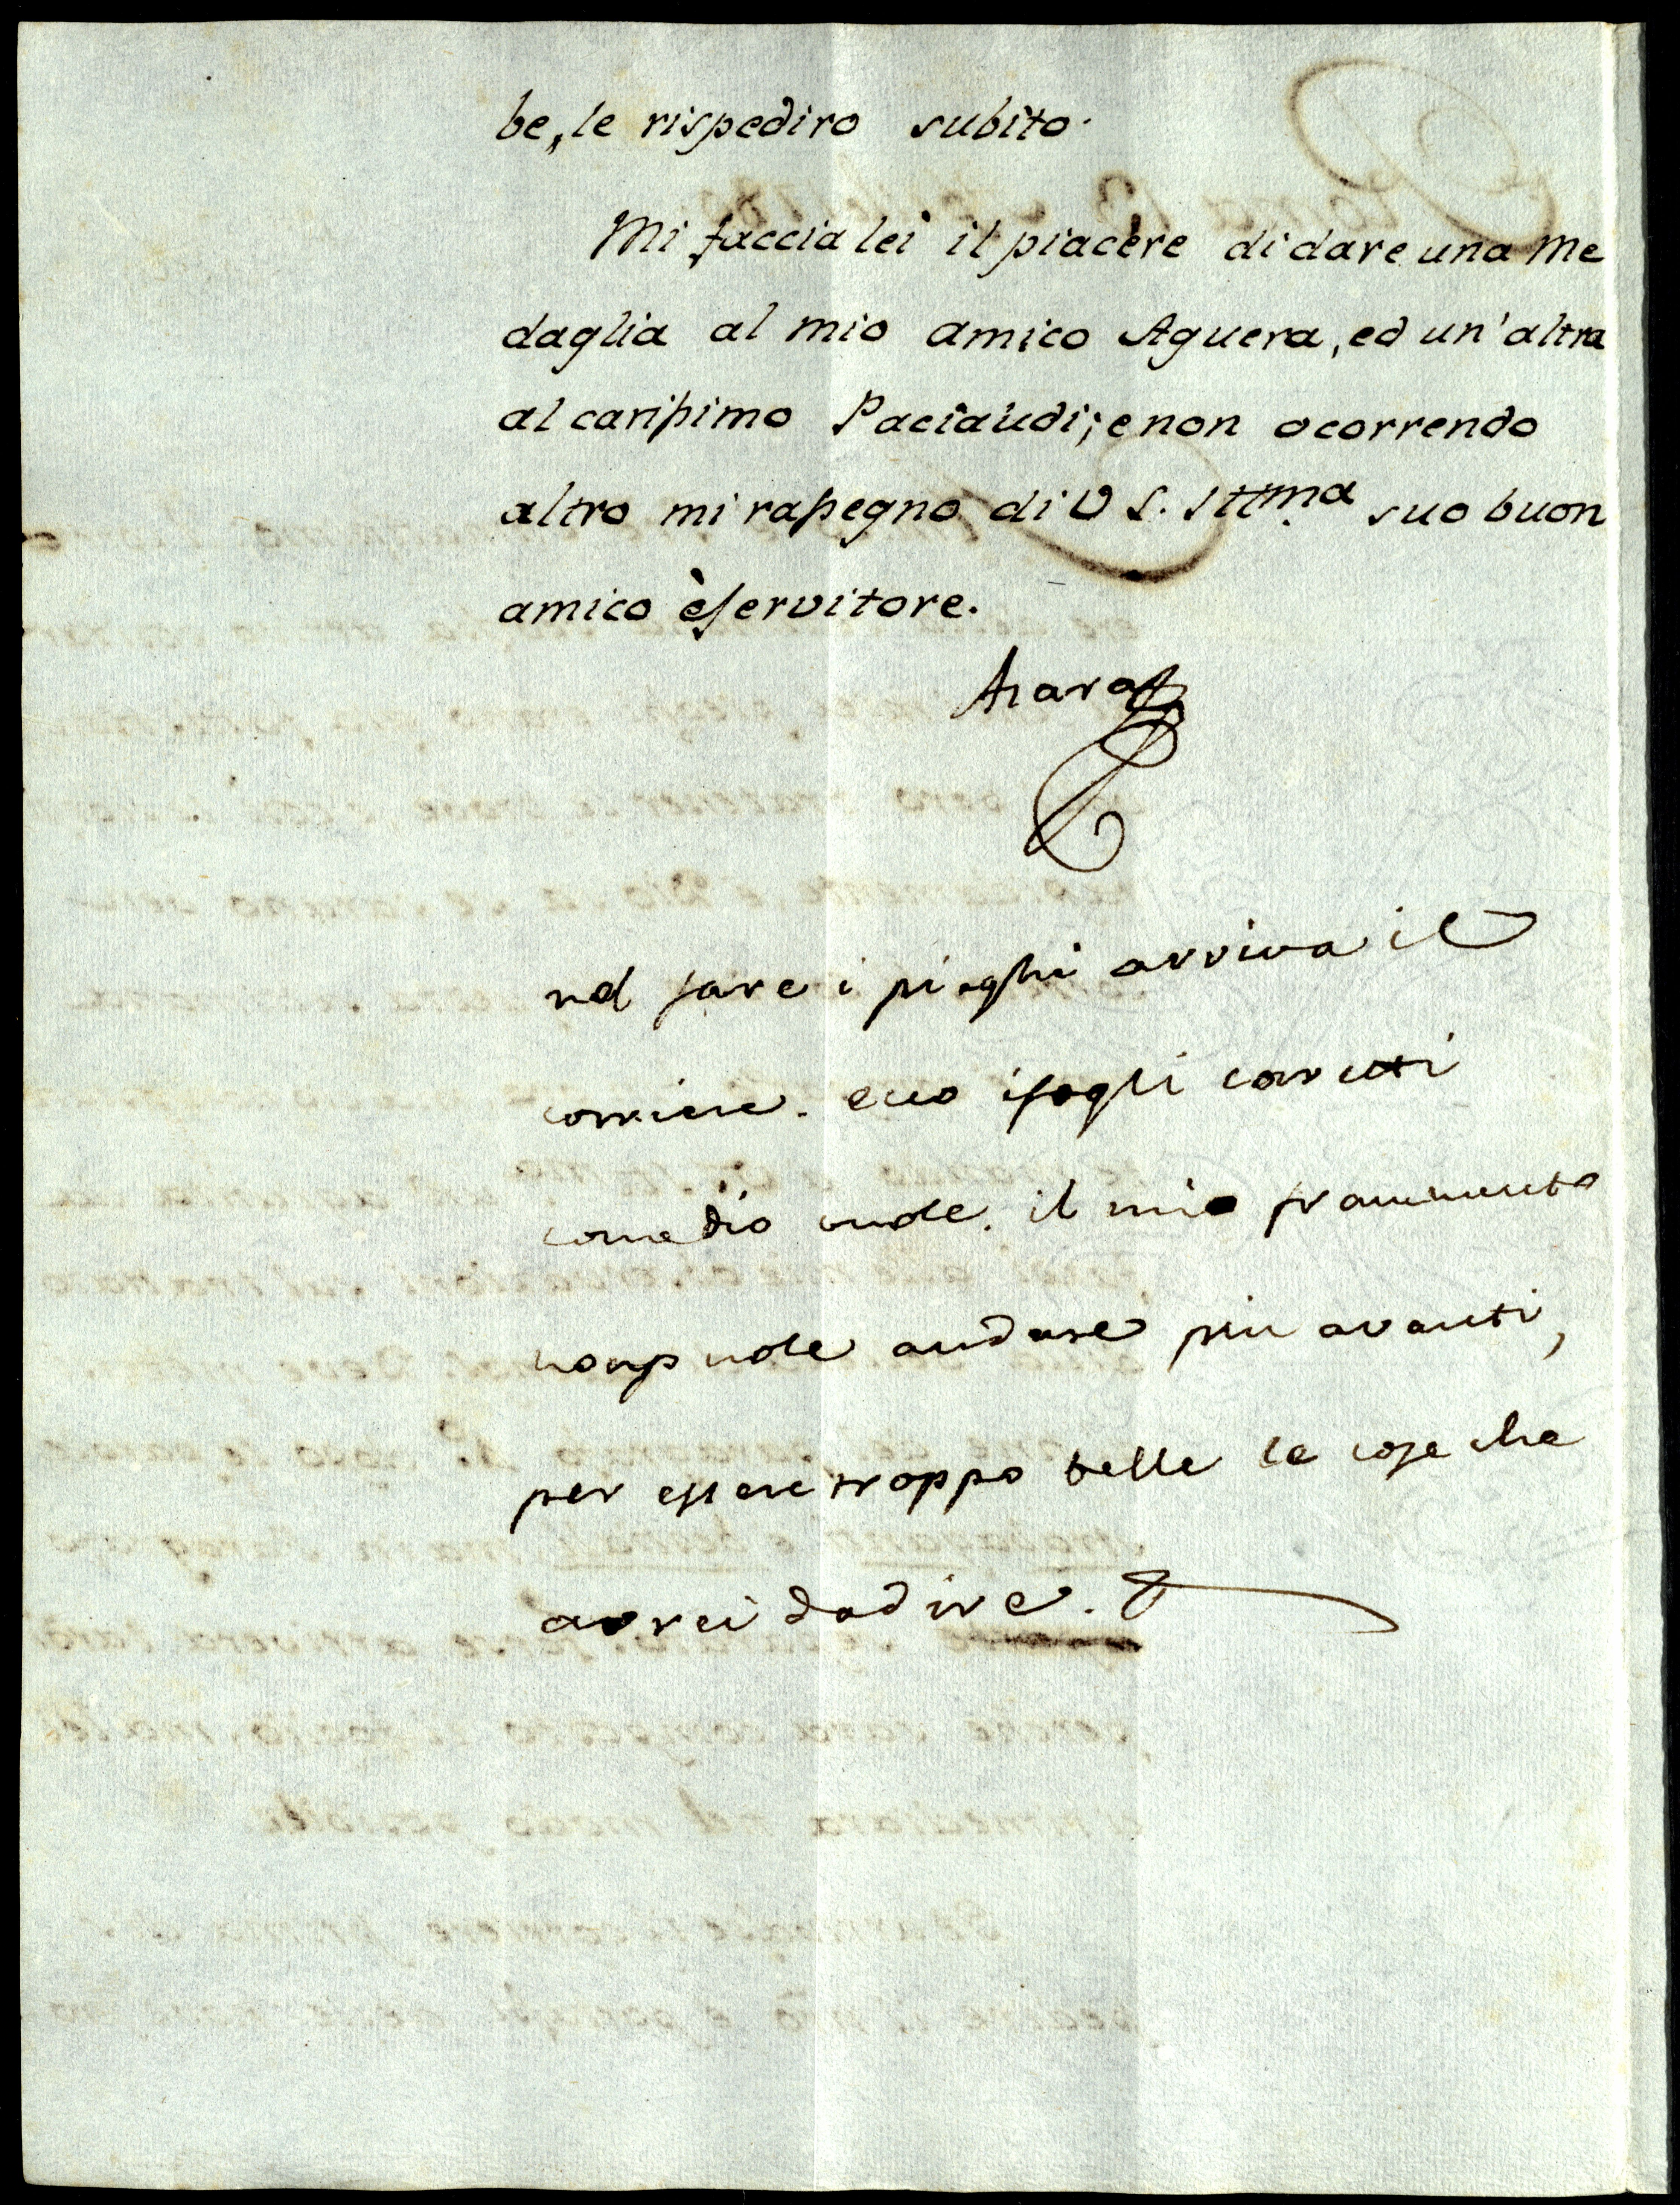 be, le rispediro subito.
Mi faccia lei il piacere di dare una Me
daglia al mio amico Aguera, ed un' altra
al carissimo Paciaudi; e non ocorrendo
altro mi rassegno di V S. Ittma suo buon
amico è servitore.
Azara
nel fare i pieghi arriva il
corriere. ecco i fogli corretti
come dio vuole. il mio frammento
non puole andare piu avanti,
per essere troppo belle le cose che
avrei da dire.